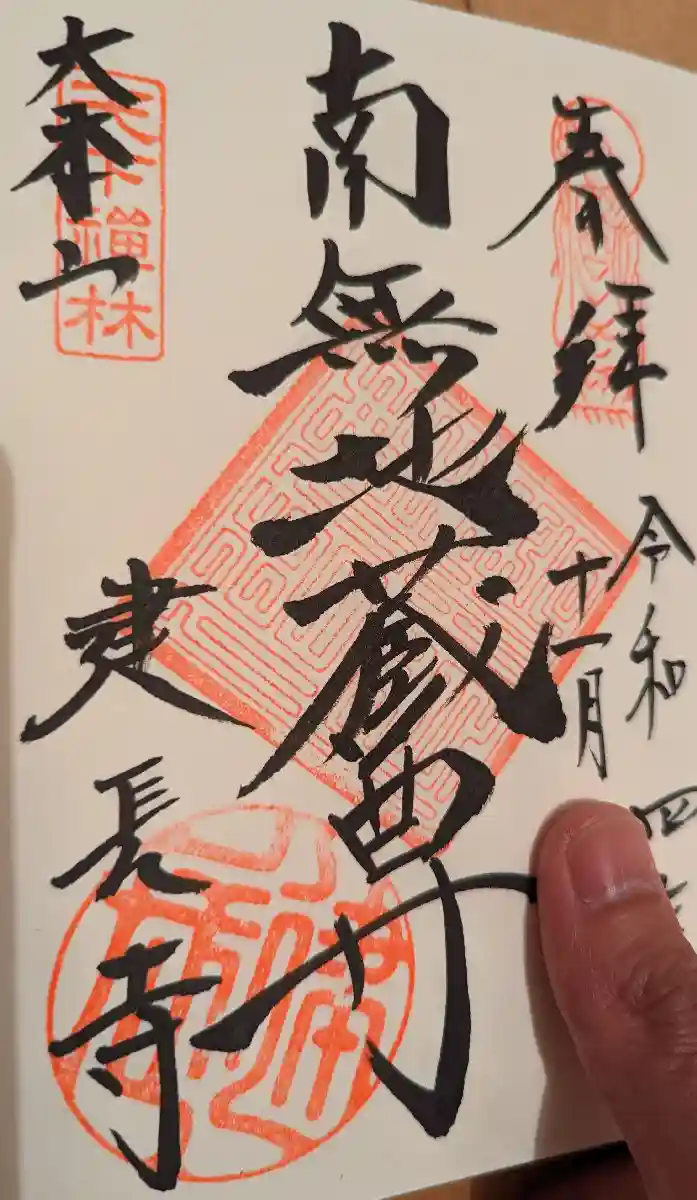 奉拝
令和四
十一月
南無地蔵尊
大本山
天下禪林
建長寺